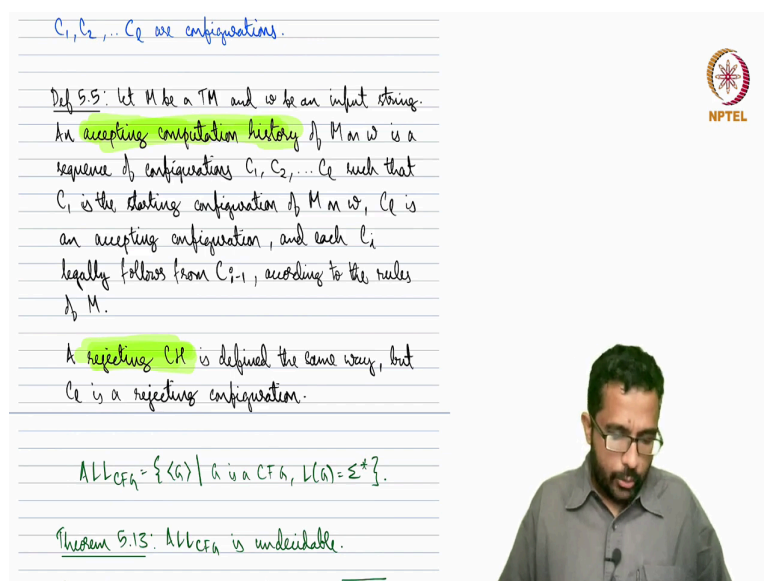 C₁, C₂, .. Cℓ are configurations.
Def 5.5: Let M be a TM and w be an input string.
An accepting computation history of M on w is a
sequence of configurations C₁, C₂, ... Cℓ such that
C₁ is the starting configuration of M on w, Cℓ is
an accepting configuration, and each Cᵢ
legally follows from Cᵢ₋₁, according to the rules
of M.
A rejecting CH is defined the same way, but
Cℓ is a rejecting configuration.
ALL_CFG = {<G> | G is a CFG, L(G) = Σ*}.
Theorem 5.13: ALL_CFG is undecidable.
NPTEL